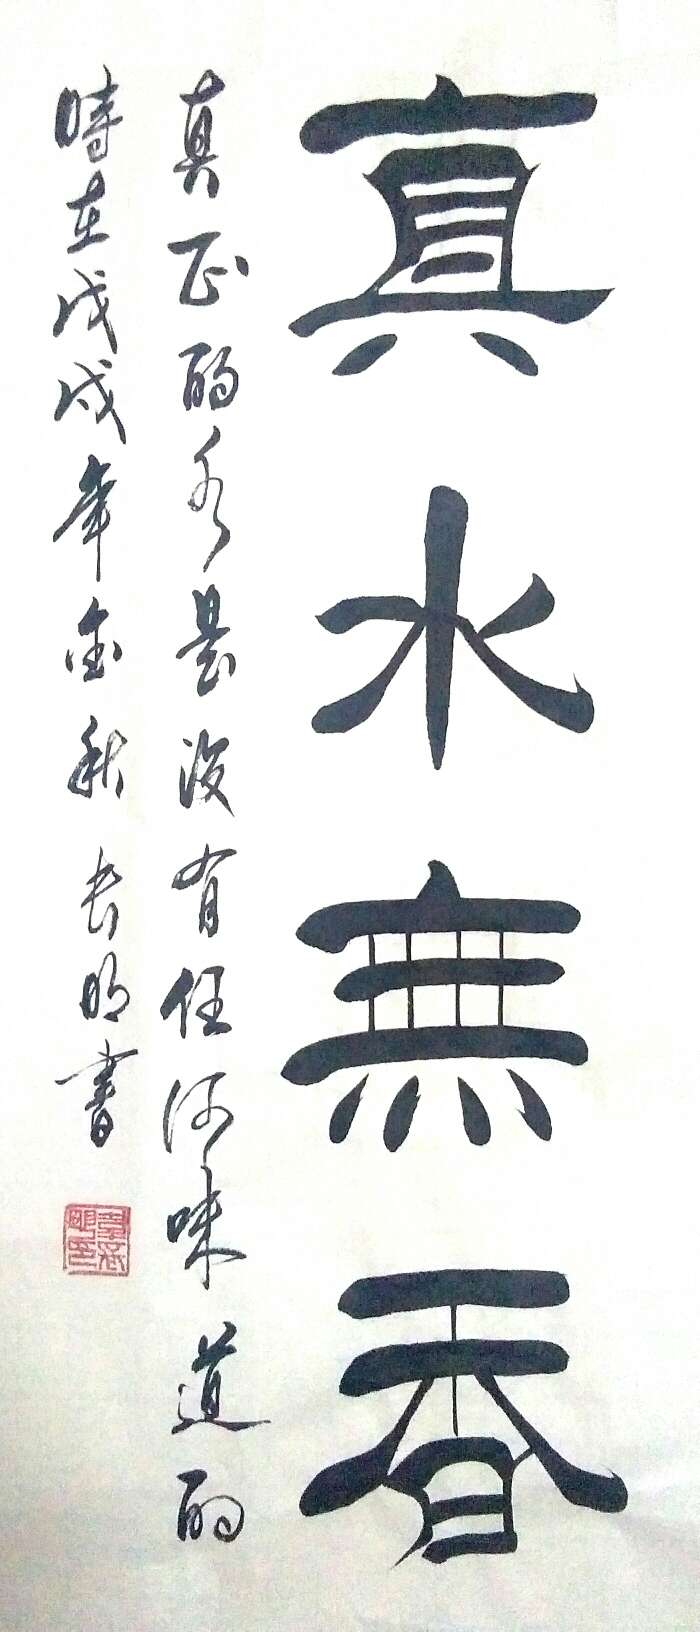 真水無香
真正的水是没有任何味道的
時在戊戌年金秋 长明書